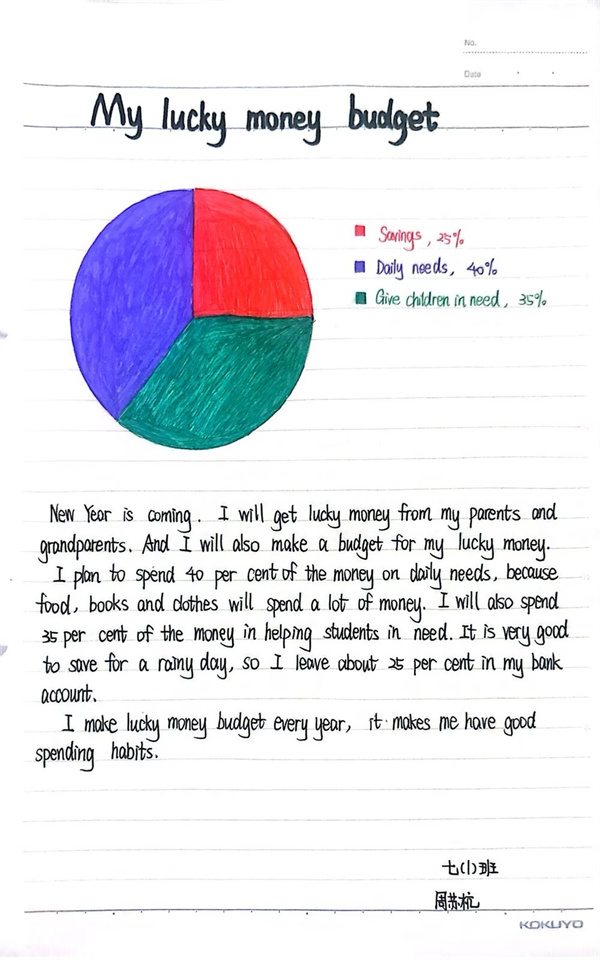 No.
Date
My lucky money budget
Savings, 25%
Daily needs, 40%
Give children in need, 35%
New Year is coming. I will get lucky money from my parents and
grandparents. And I will also make a budget for my lucky money.
I plan to spend 40 per cent of the money on daily needs, because
food, books and clothes will spend a lot of money. I will also spend
35 per cent of the money in helping students in need. It is very good
to save for a rainy day, so I leave about 25 per cent in my bank
account.
I make lucky money budget every year, it makes me have good
spending habits.
七(1)班
周苏杭
KOKUYO